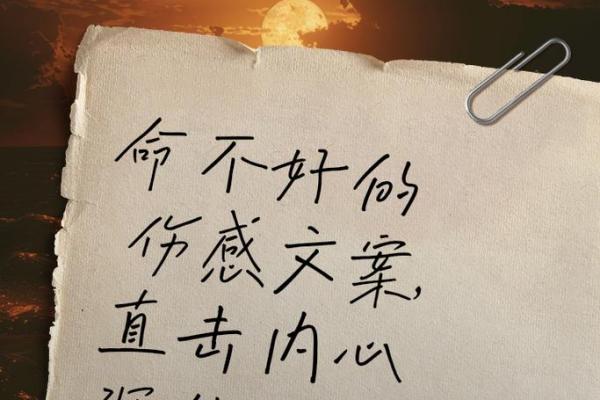 命不好的
伤感文案，
直击内心